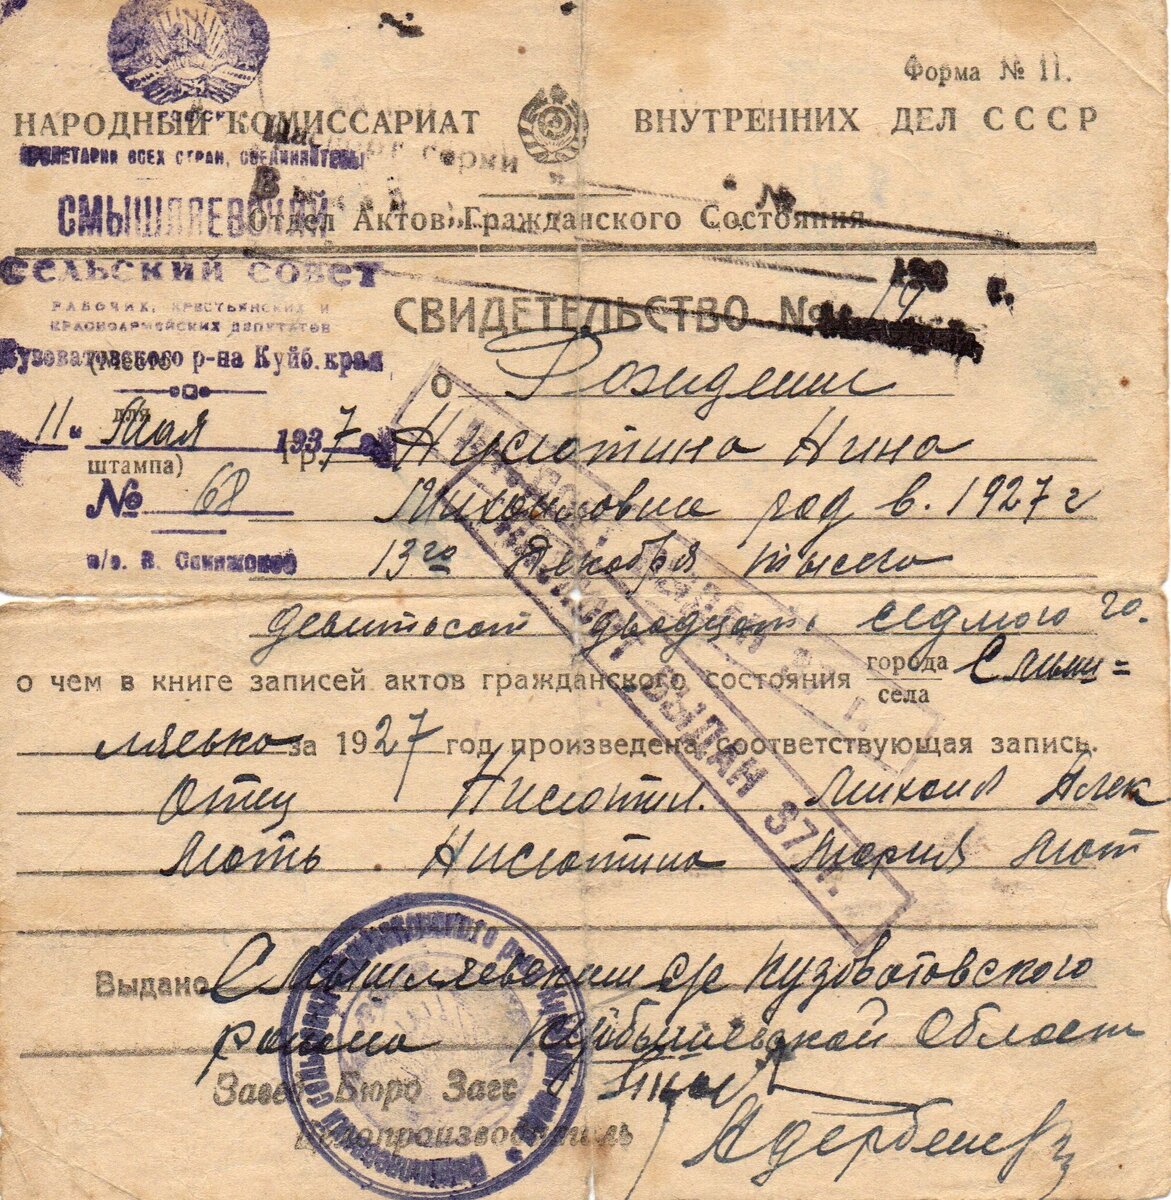 Форма № 11.
НАРОДНЫЙ КОМИССАРИАТ ВНУТРЕННИХ ДЕЛ СССР
ПРОЛЕТАРИИ ВСЕХ СТРАН, СОЕДИНЯЙТЕСЬ!
серии
В №
СМЫШЛЯЕВСКИЙ
Отдел Актов Гражданского Состояния
СЕЛЬСКИЙ СОВЕТ
193 г.
РАБОЧИХ, КРЕСТЬЯНСКИХ И
КРАСНОАРМЕЙСКИХ ДЕПУТАТОВ
СВИДЕТЕЛЬСТВО № 19
Кузоватовского р-на Куйб. края
(Место
о Рождении
для
11 " Мая 1937 г.
штампа)
1 гр.
Никотина Нина
№ 68
Михайловна год в. 1927 г
13го Декабря тысего
девитьсот двадцать седмого го.
о чем в книге записей актов гражданского состояния города села Смыш=
ляевко за 1927 год произведена соответствующая запись.
Отец Никотин Михаил Алек
Мать Никотина Мария Мат
ПАСПОРТ ВЫДАН 37 г.
Выдано Смышляевским с/с Кузоватовского
района Куйбышевской Област
Завед. Бюро Загс
Делопроизводитель